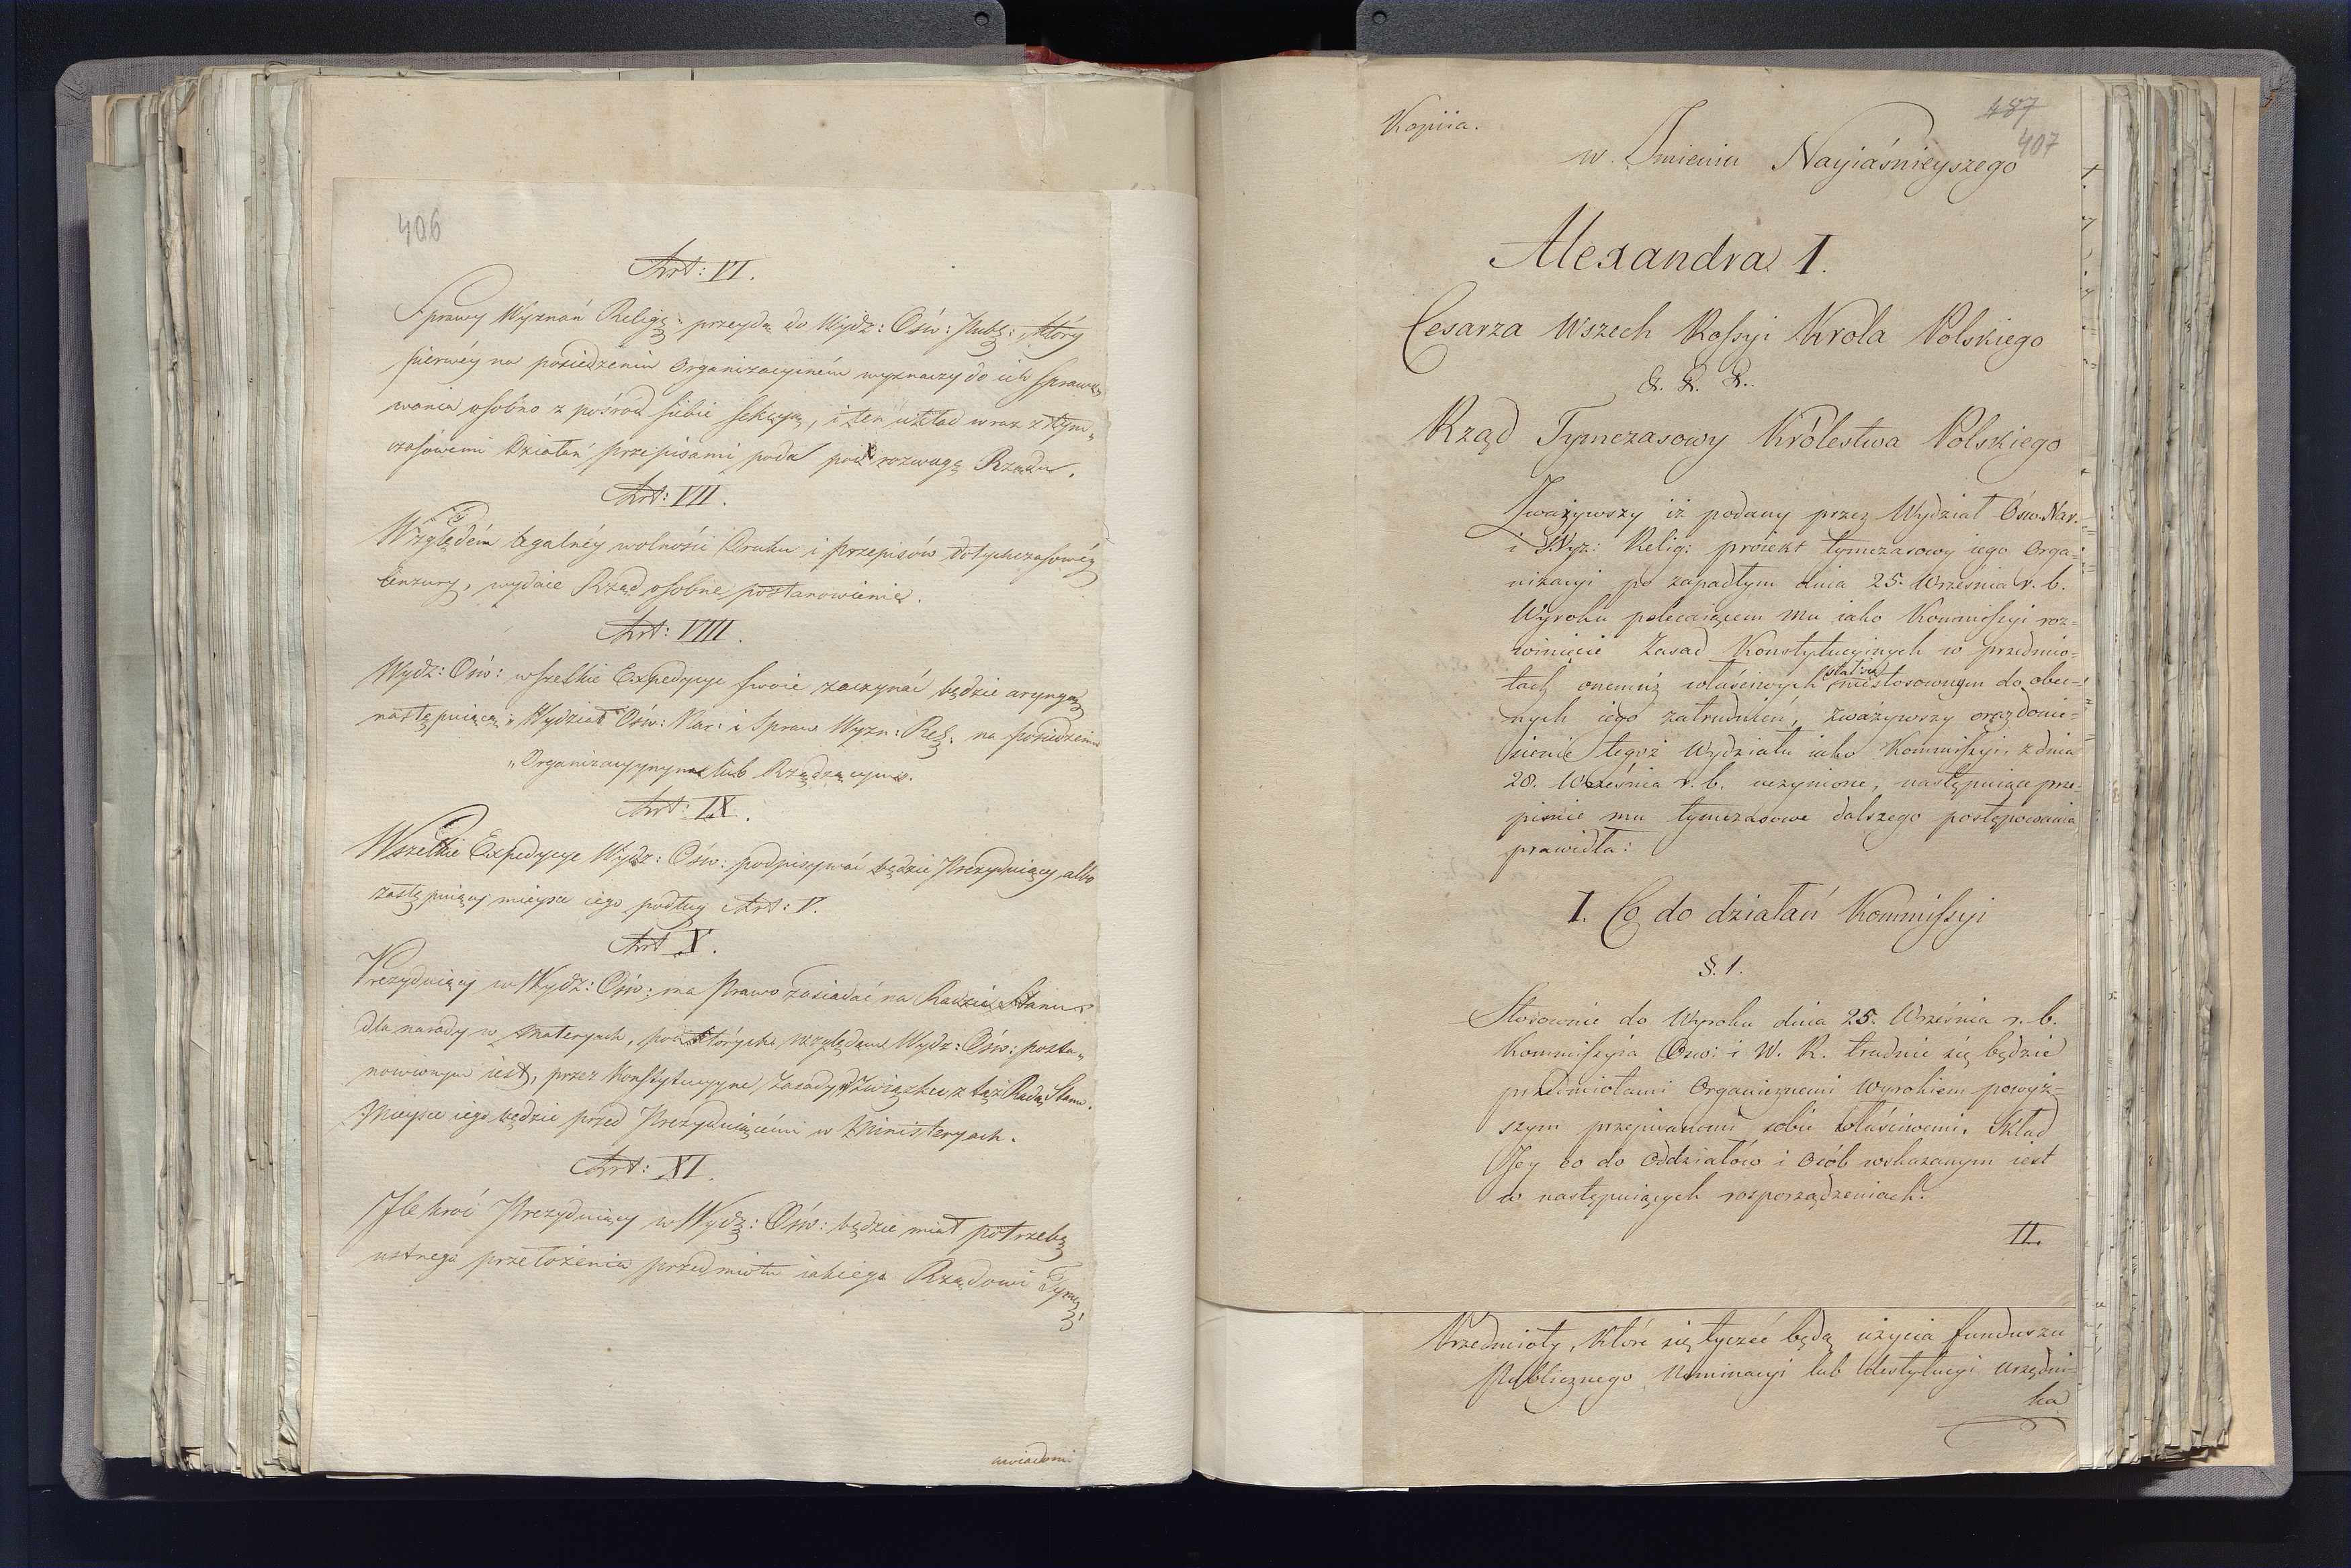 406
Art: VI.
Sprawy Wyznań Religij: przeydą do Wydz: Ośw: Publ:, który
pierwéy na posiedzeniu Organizacyiném wyznaczy do ich sprawo„
wania osobno z pośród siebie sekcyą, i ten układ wraz z tym„
czasowemi Działań przepisami poda pod rozwagę Rządu.
Art: VII.
Względém legalnéy wolności Druku i przepisów dotychczasowéy
Cenzury, wydaie Rząd osobne postanowienie.
Art: VIII.
Wydz: Ośw: wszelkie Expedycye swoie zaczynać będzie
następuiącą: „Wydział Ośw: Nar: i Spraw Wyzn: Rel: na posiedzeniu
„Organizacyynym lub Rządzącym.
Art: IX.
Wszelkie Expedycye Wydz: Ośw: podpisywać będzie Prezyduiący albo
zastępuiący mieysce iego podług Art: V.
Art X.
Prezyduiący w Wydz: Ośw: ma Prawo zasiadać na Radzie Stanu
dla narady w materyach, pod których względem Wydz: Ośw: posta„
nowionym iest, przez Konstytucyyne Zasady, w Związku z tąż Radą Stanu.
Mieysce iego będzie przed Prezyduiącémi w Ministeryach.
Art: XI.
Ile kroć Prezyduiący w Wydz: Ośw: będzie miał potrzebę
ustnego przełożenia przedmiotu iakiego Rządowi Tymcz:
uwiadomi
487
407
Kopiia.
w Imieniu Nayiaśnieyszego
Alexandra I.
Cesarza Wszech Rossyi Krola Polskiego
&. &. &.
Rząd Tymczasowy Królestwa Polskiego
Zważywszy iż podany przez Wydział Ośw. Nar.
i Wyz: Relig: proiekt tymczasowy iego Orga=
nizacyi po zapadłym dnia 25. Września r. b.
Wyroku polecaiącem mu iako Kommissyi roz=
winięcie Zasad Konstytucyinych w przedmio=
tach onemuż właściwych stał się niestosownym do obec=
nych iego zatrudnień, zważywszy oraz donie=
sienie tegoż Wydziału iako Kommissyi z dnia
28. Września r. b. uczynione, następuiące prze=
pisuie mu tymczasowe dalszego postępowania
prawidła:
I. Co do działań Kommissyi
§. 1.
Stosownie do Wyroku dnia 25. Września r. b.
Kommissyia Ośw: i W. R. trudnić się będzie
przedmiotami Organicznemi Wyrokiem powyż=
szym przepisanemi sobie właściwemi. Skład
Jey co do Oddziałów i Osób wskazanym iest
w następuiących rozporządzeniach.
II.
Przedmioty, które się tyczeć będą użycia funduszu
Publicznego Nominacyi lub destytucyi urzędni=
ka